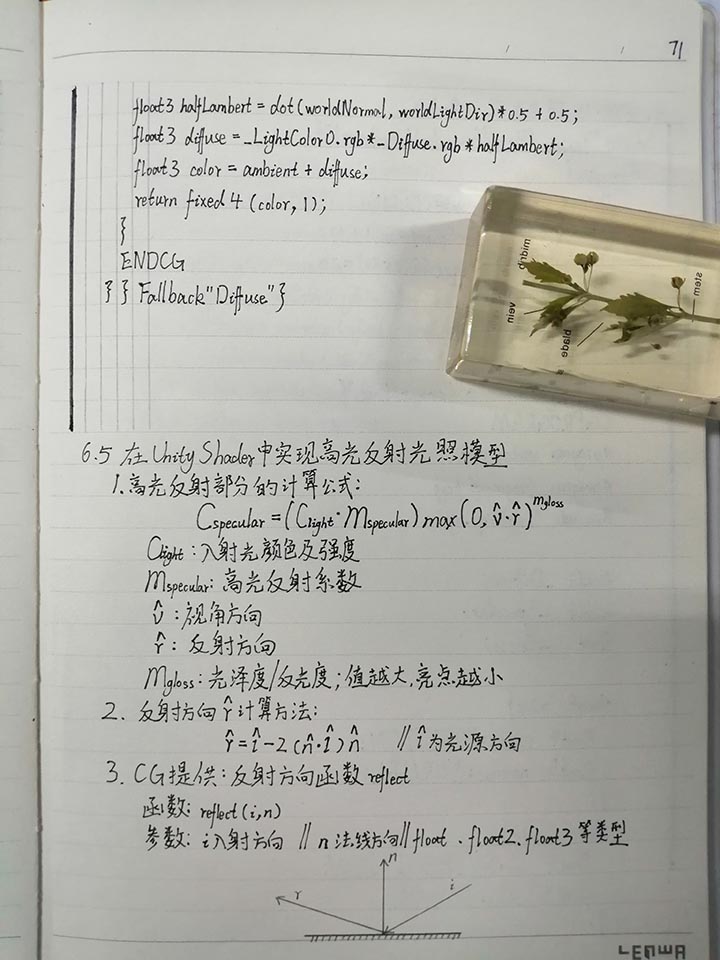 71
float3 halfLambert = dot(worldNormal, worldLightDir)*0.5 + 0.5;
float3 diffuse = _LightColor0.rgb*_Diffuse.rgb*halfLambert;
float3 color = ambient + diffuse;
return fixed4 (color, 1);
}
ENDCG
} } Fallback"Diffuse"}
midrib
stem
vein
blade
6.5 在Unity Shader中实现高光反射光照模型
1.高光反射部分的计算公式:
Cspecular = (Clight·Mspecular) max(0, v̂·r̂)^mgloss
Clight:入射光颜色及强度
Mspecular:高光反射系数
v̂:视角方向
r̂:反射方向
Mgloss:光泽度/反光度;值越大,亮点越小
2. 反射方向r̂计算方法:
r̂ = î-2(n̂·î)n̂ // î为光源方向
3. CG提供:反射方向函数reflect
函数: reflect(i,n)
参数: i入射方向 // n法线方向//float、float2、float3等类型
n
r i
LENWA